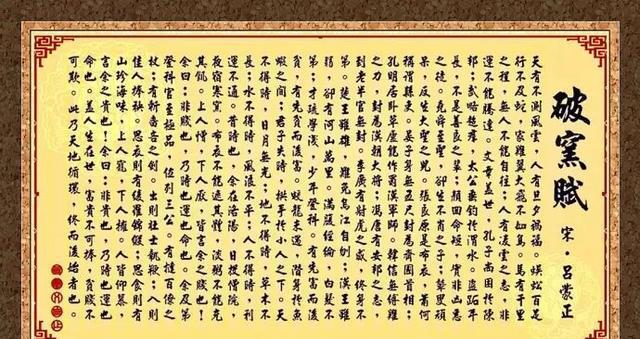 破窯賦
宋·呂蒙正
天有不測風雲，人有旦夕禍福。蜈蚣百足
行不及蛇，家雞翼大飛不如鳥。馬有千里
之程，無人不能自往；人有凌雲之志，非
運不能騰達。文章蓋世，孔子尚困於陳
邦；武略超群，太公垂釣於渭水。盜跖年
長，不是善良之輩；顏回命短，實非凶惡
之徒。堯舜至聖，卻生不肖之子；瞽叟頑
呆，反生大聖之兒。張良原是布衣，蕭何
稱謂縣吏。晏子身無五尺，封為齊國首相；
孔明居臥草廬，能作蜀漢軍師。韓信無縛雞
之力，封為漢朝大將；馮唐有安邦之志，
到老半官無封。李廣有射虎之威，終身不
第。楚王雖雄，難免烏江自刎；漢王雖
弱，卻有河山萬里。滿腹經綸，白髮不
第；才疏學淺，少年登科。有先富而後
貧，有先貧而後富。蛟龍未遇，潛身於魚
蝦之間；君子失時，拱手於小人之下。天
不得時，日月無光；地不得時，草木不
長；水不得時，風浪不平；人不得時，利
運不通。昔時也，余在洛陽，日投僧院，
夜宿寒窯。布衣不能遮其體，淡粥不能充
其飢。上人憎，下人厭，皆言余之賤也！
余曰：非賤也，乃時也運也命也。余及第
登科，官至極品，位列三公。有撻百僚之
杖；有斬嗇吝之劍。出則壯士執鞭；入則
佳人捧袂。思衣則有綾羅錦緞；思食則有
山珍海味。上人寵，下人擁。人皆仰慕，
言余之貴也！余曰：非貴也，乃時也運也
命也。蓋人生在世，富貴不可捧，貧賤不
可欺。此乃天地循環，終而復始者也。